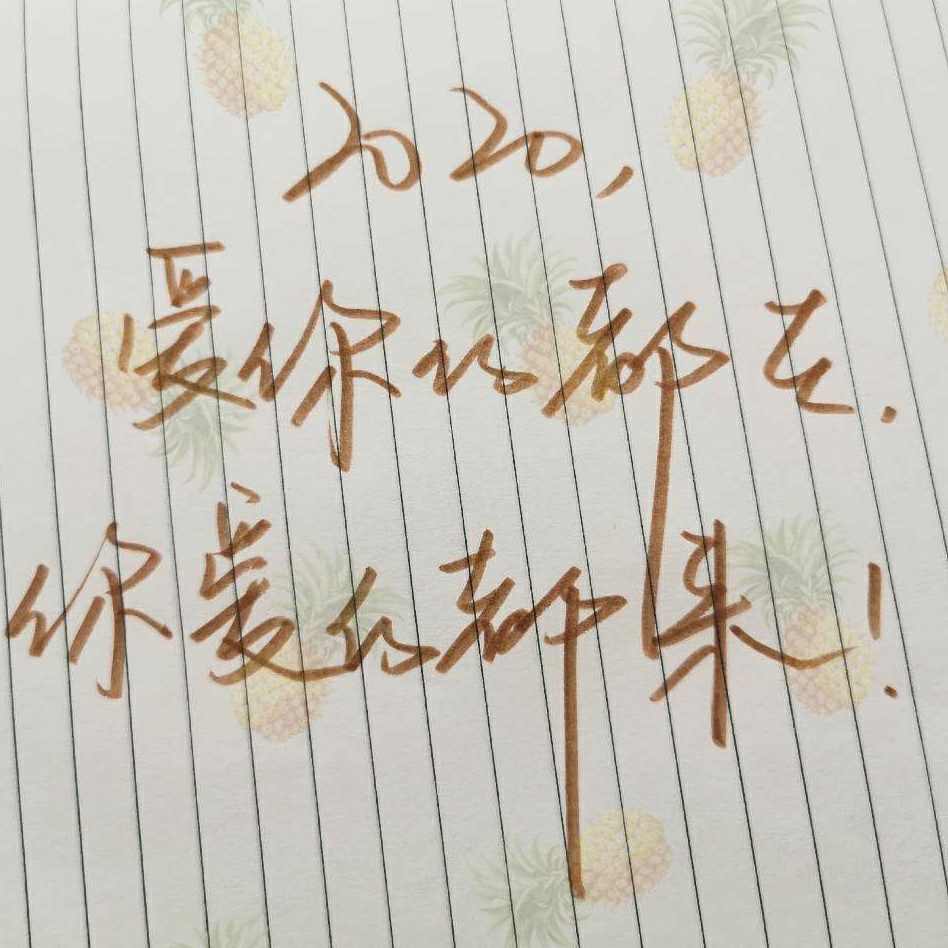 2020,
爱你的都在.
你爱的都来!